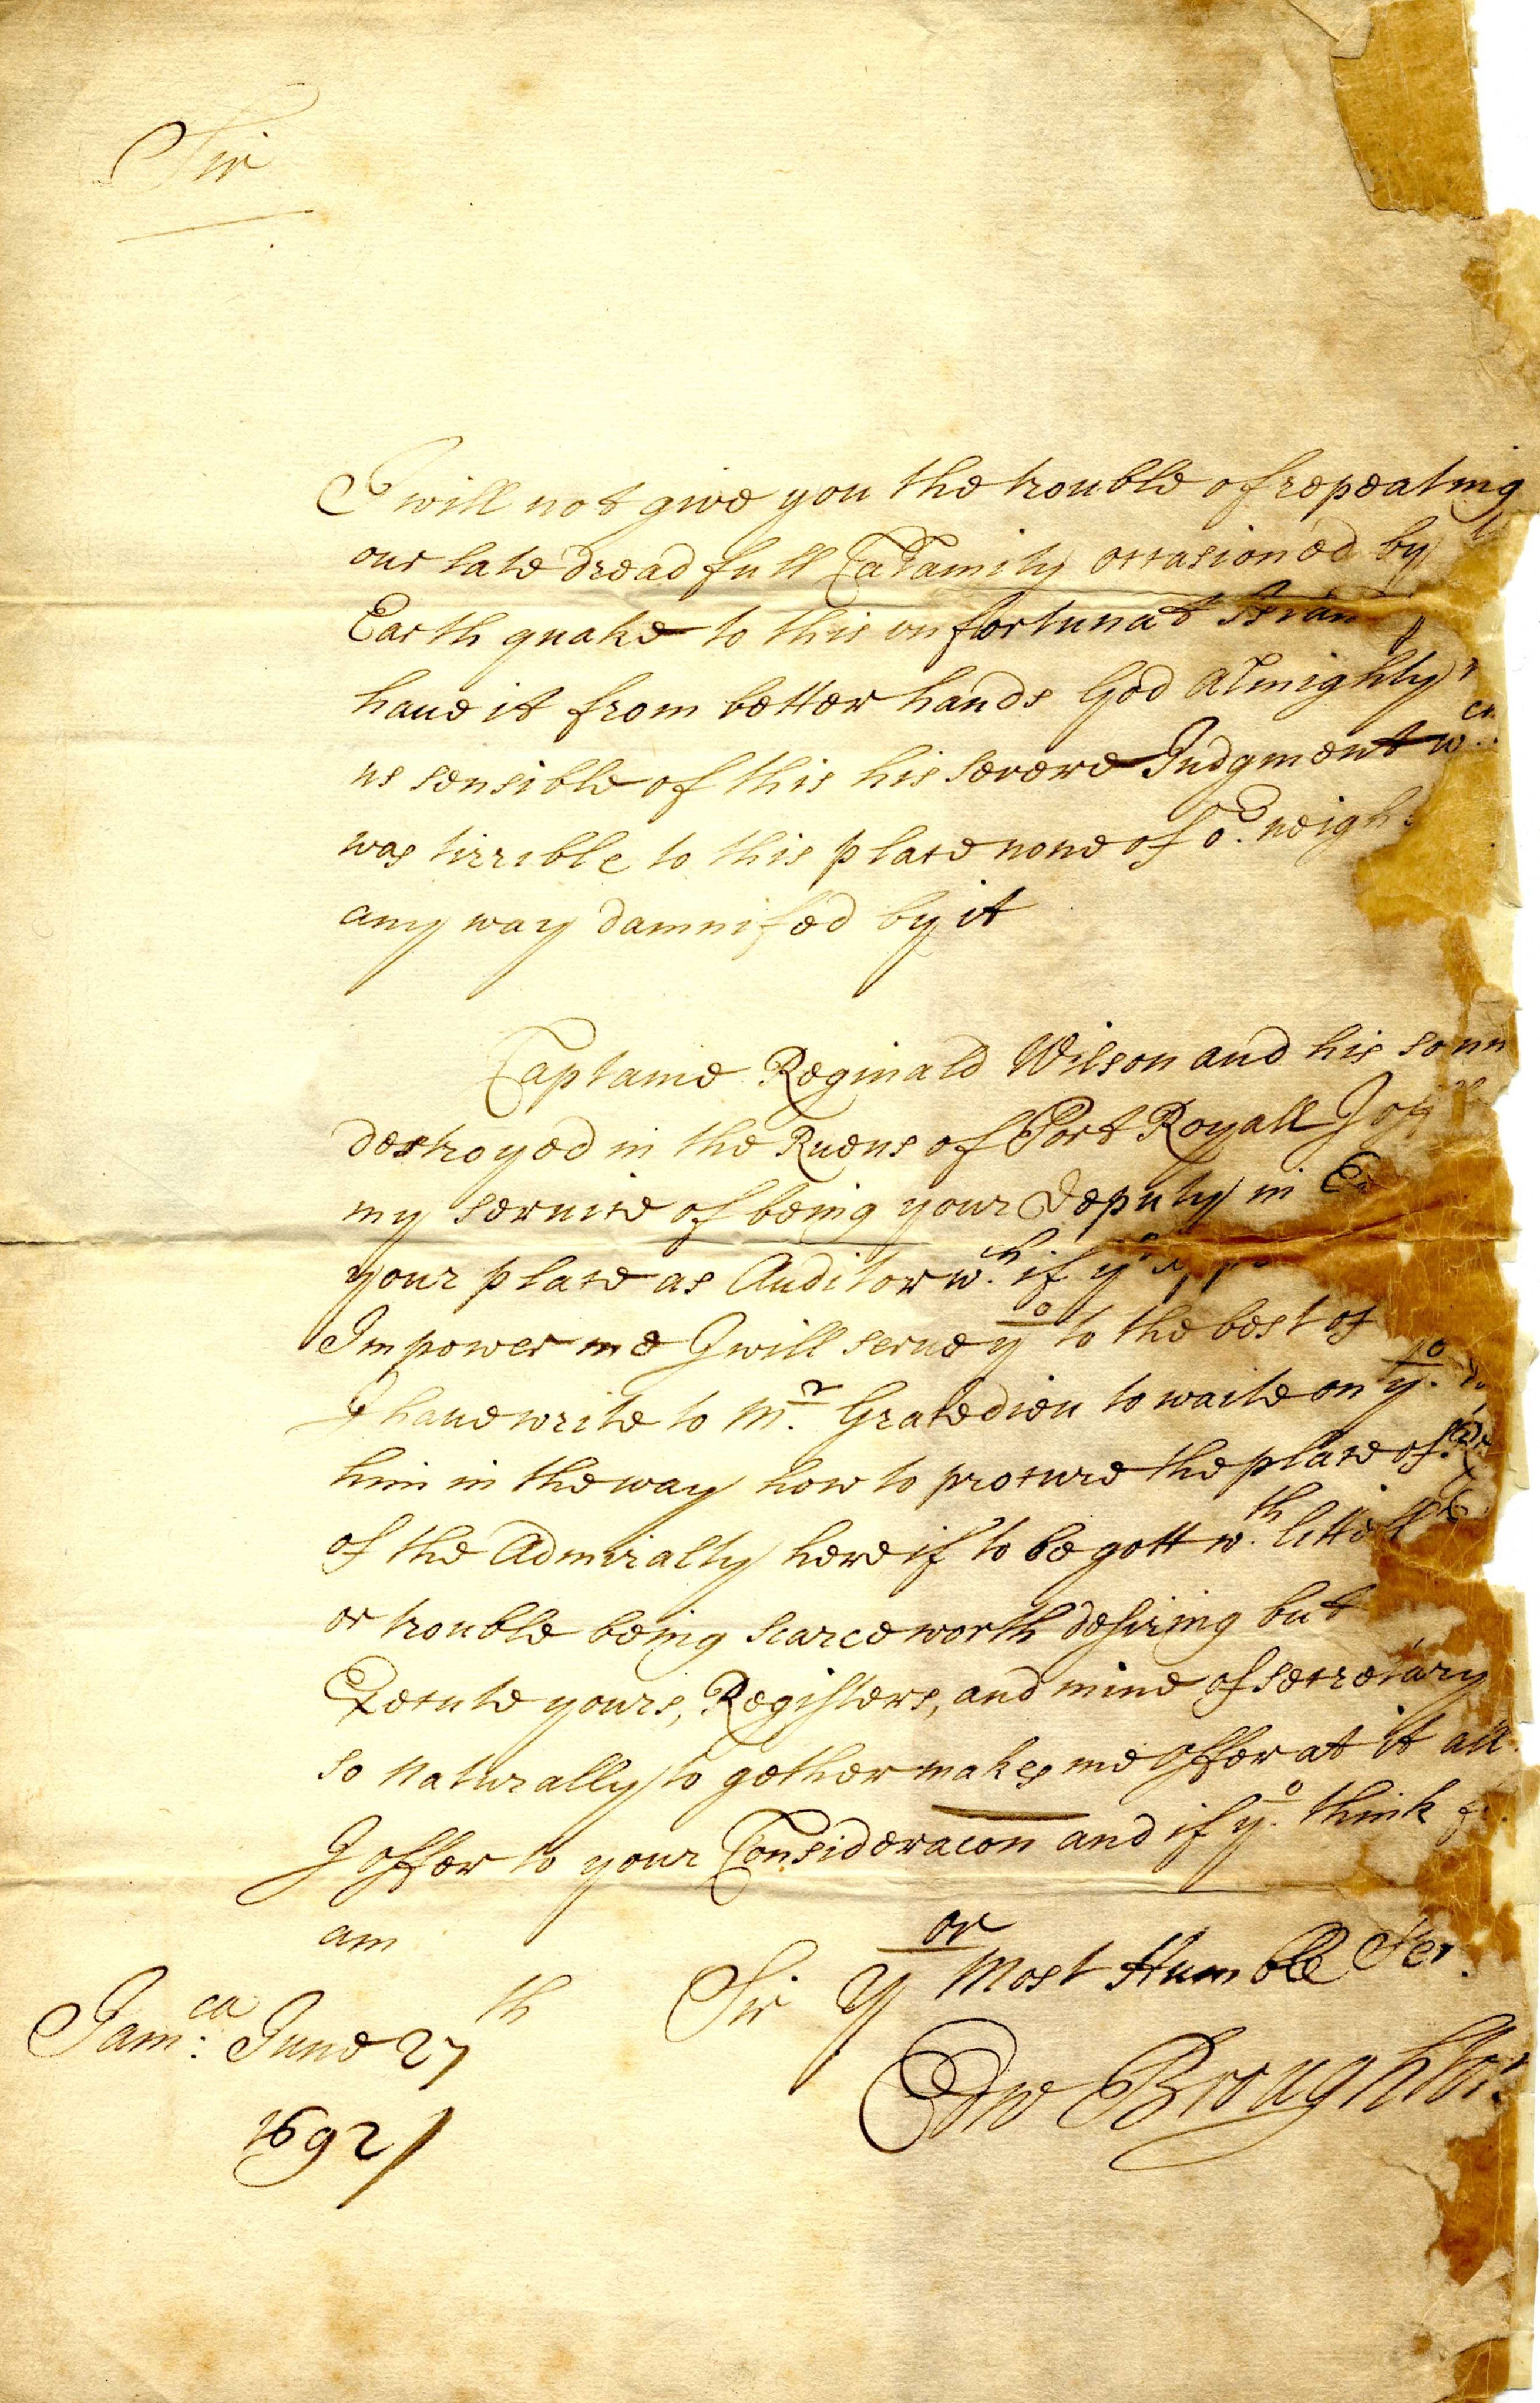 Sir
I will not give you the trouble of repeating
our late dreadfull Calamity occasioned by
Earth quake to this unfortunat
have it from better hands God Almighty
us sensible of this his severe Judgment w.ch
was tirrible to this place none of o.r neigh
any way damnifed by it
Captaine Reginald Wilson and his sonn
destroyed in the Ruens of Port Royall I
my service of being your Deputy in
your place as Auditor w.ch if y.o
Impower me I will serve y.o to the best of
I have write to M.r Gracedieu to waite on y.o
him in the way how to procure the place of
of the Admiralty here if to be gott w.th littell
or trouble being scarce worth desiring but
Execute yours, Registers, and mine of secretary
so naturally to gether makes me offer at it all
I offer to your Consideracon and if y.o think
am
Sir Y.or Most Humble Ser
Jam:ca June 27th
Edw Broughton
1692/